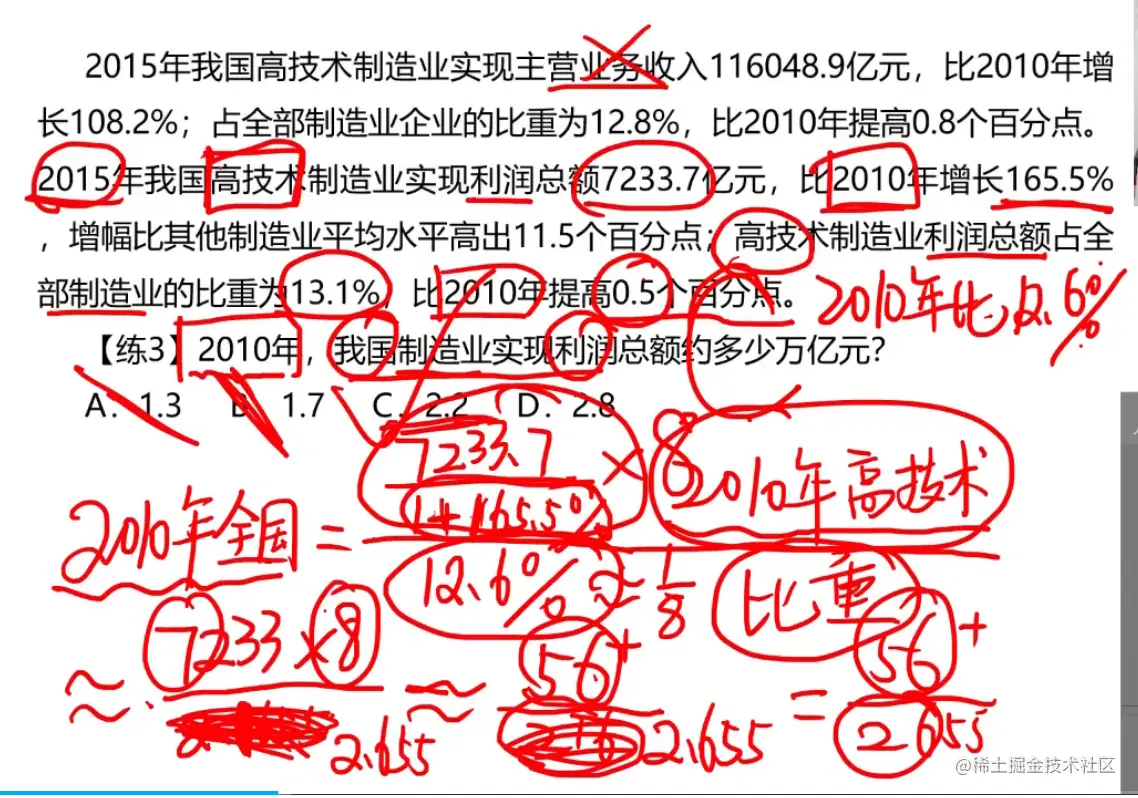 2015年我国高技术制造业实现主营业务收入116048.9亿元，比2010年增
长108.2%；占全部制造业企业的比重为12.8%，比2010年提高0.8个百分点。
2015年我国高技术制造业实现利润总额7233.7亿元，比2010年增长165.5%
，增幅比其他制造业平均水平高出11.5个百分点；高技术制造业利润总额占全
部制造业的比重为13.1%，比2010年提高0.5个百分点。
2010年比
【练3】2010年，我国制造业实现利润总额约多少万亿元？
A．1.3 B．1.7 C．2.2 D．2.8
7233.7 × 8 2010年高技术
1+165.5%
2010年全国 =
12.6% ≈ 1/8 比重
7233×8 56+ 56+
≈ ≈ =
2.655 2.655 2655
@稀土掘金技术社区